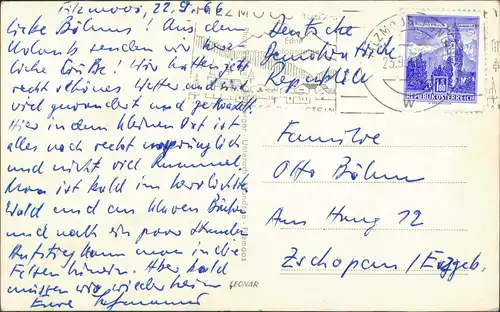 Filzmoos, 22.9.66
Liebe Böhms! Aus dem
Urlaub senden wir herz-
liche Grüße! Wir hatten jetzt
recht schönes Wetter und sind
viel gewandert und
Hier in dem kleinen Ort ist
alles noch recht ursprünglich
und nicht viel Rummel.
Man ist bald im herrlichsten
Wald und an klaren
und nach ein paar Stunden
Aufstieg kann man in die
Felsen hinein. Aber bald
müssen wir wieder heim
Eure
Deutsche
Demokratische
Republik
Familie
Otto Böhm
Am Hang 12
Zschopau / Erzgeb.
REPUBLIK ÖSTERREICH
LEONAR